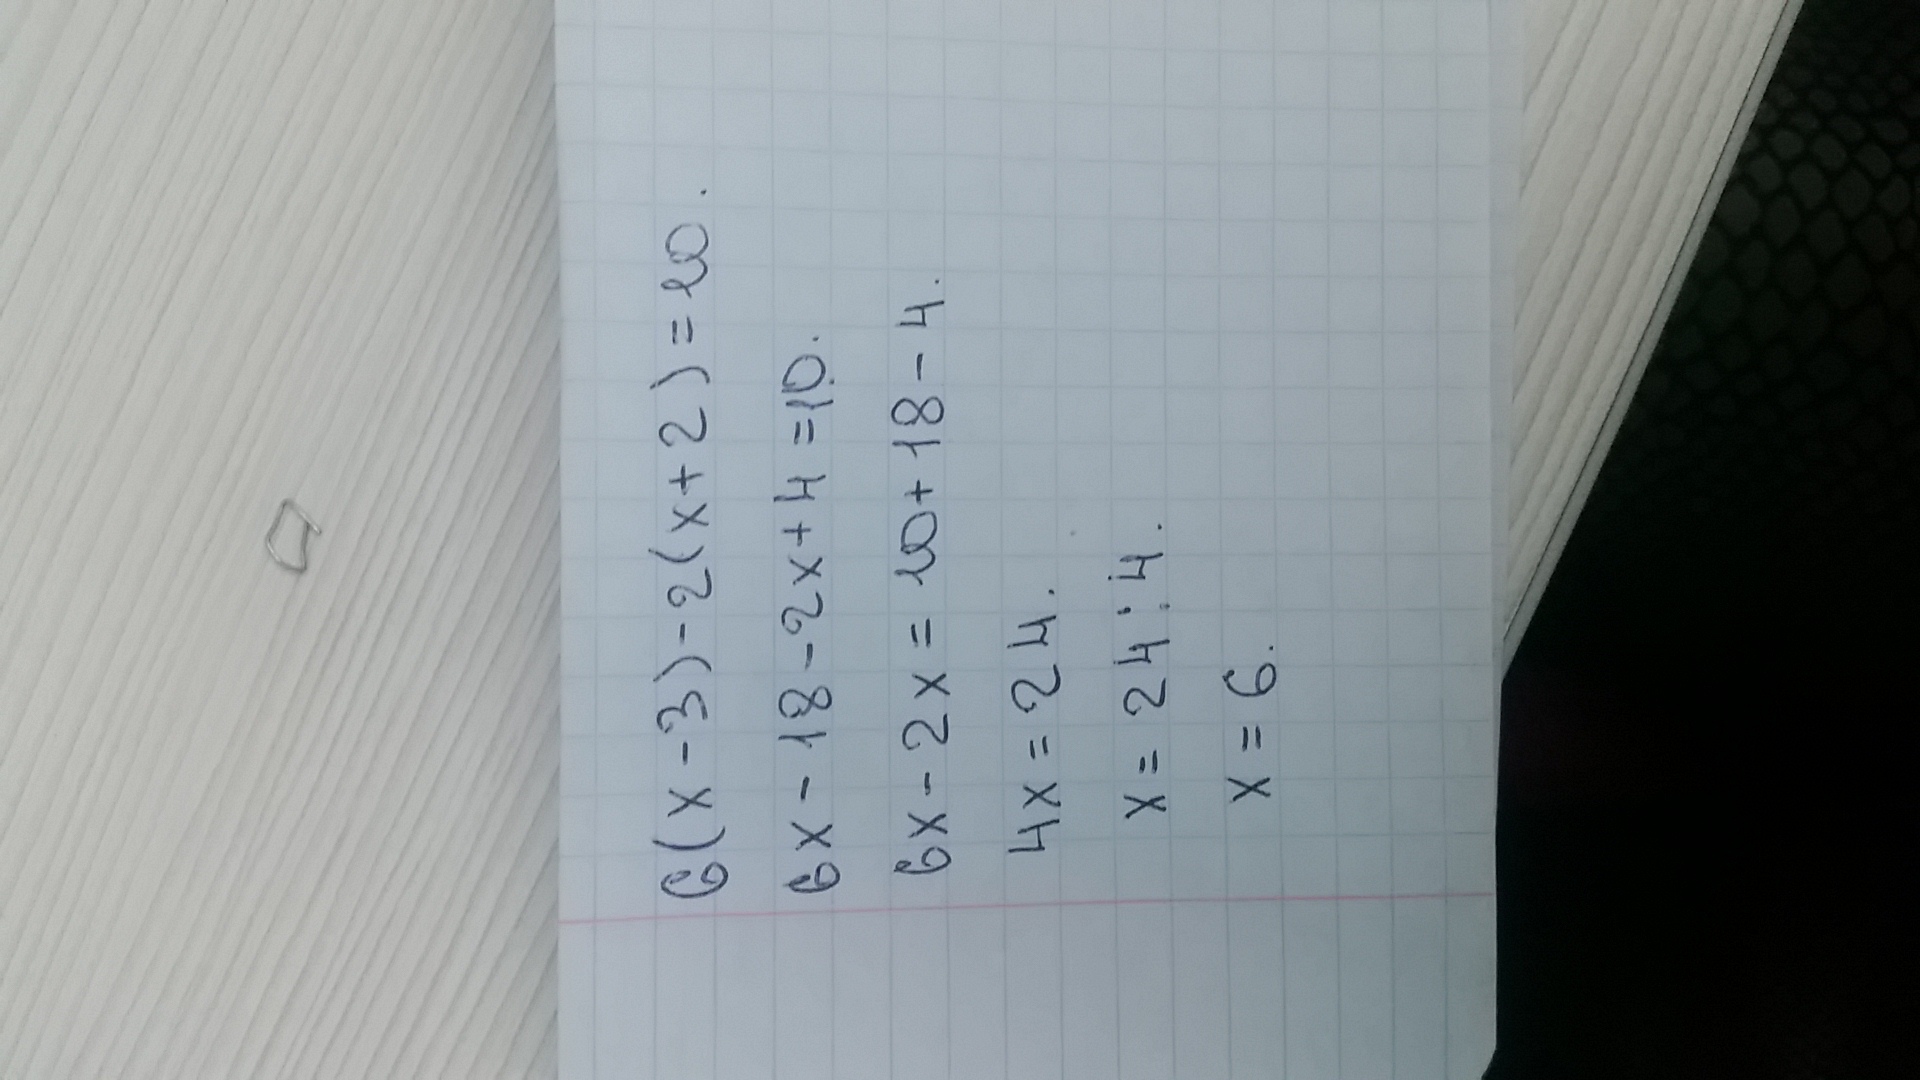 6(x-3)-2(x+2)=10.
6x-18-2x+4=10.
6x-2x=10+18-4.
4x=24.
x=24:4.
x=6.